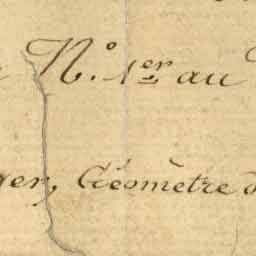 N.° 1er au
ger, Géomètre